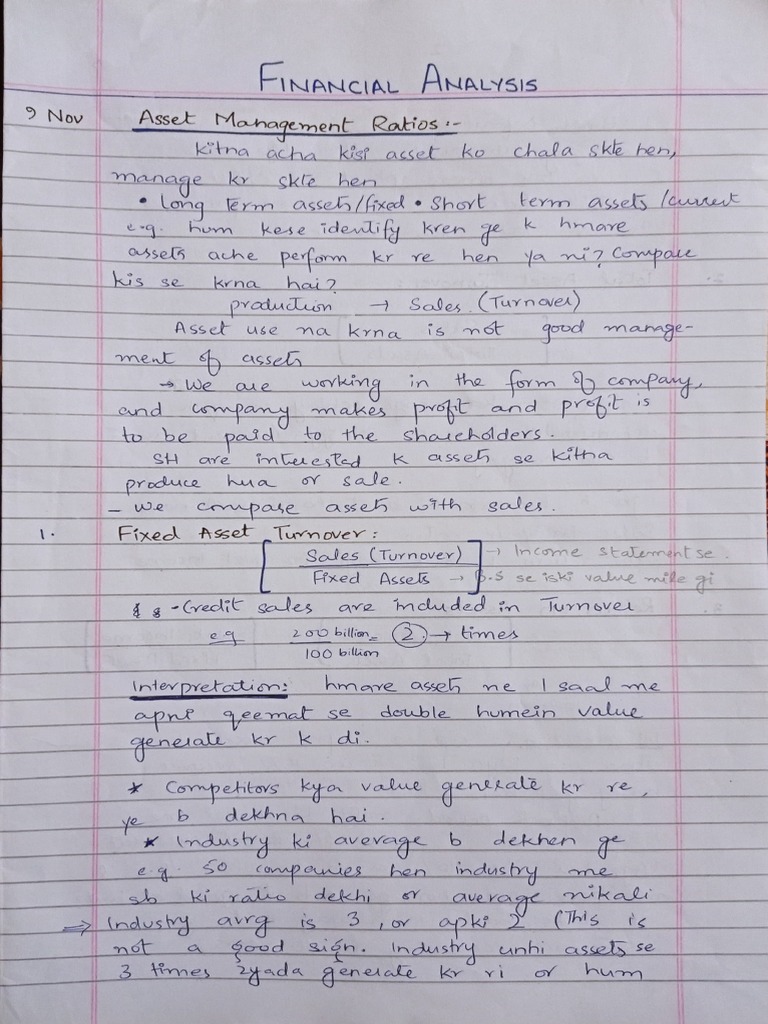 FINANCIAL ANALYSIS
9 Nov Asset Management Ratios :-
kitna acha kisi asset ko chala skte hen,
manage kr skte hen
• Long term assets/fixed • Short term assets /current
e.g. hum kese identify kren ge k hmare
assets ache perform kr re hen ya ni? Compare
kis se krna hai?
production → Sales (Turnover)
Asset use na krna is not good manage-
ment of assets
→ We are working in the form of company,
and company makes profit and profit is
to be paid to the shareholders.
SH are interested k assets se kitna
produce hua or sale.
- we compare assets with sales.
1. Fixed Asset Turnover :
Sales (Turnover) → Income statement se.
Fixed Assets → B.S se iski value mile gi
- Credit sales are included in Turnover
eg 200 billion = 2 → times
100 billion
Interpretation: hmare assets ne 1 saal me
apni qeemat se double humein value
generate kr k di.
* Competitors kya value generate kr re,
ye b dekhna hai.
* Industry ki average b dekhen ge
e.g. 50 companies hen industry me
sb ki ratio dekhi or average nikali
⇒ Industry avrg is 3, or apki 2 (This is
not a good sign. Industry unhi assets se
3 times zyada generate kr ri or hum